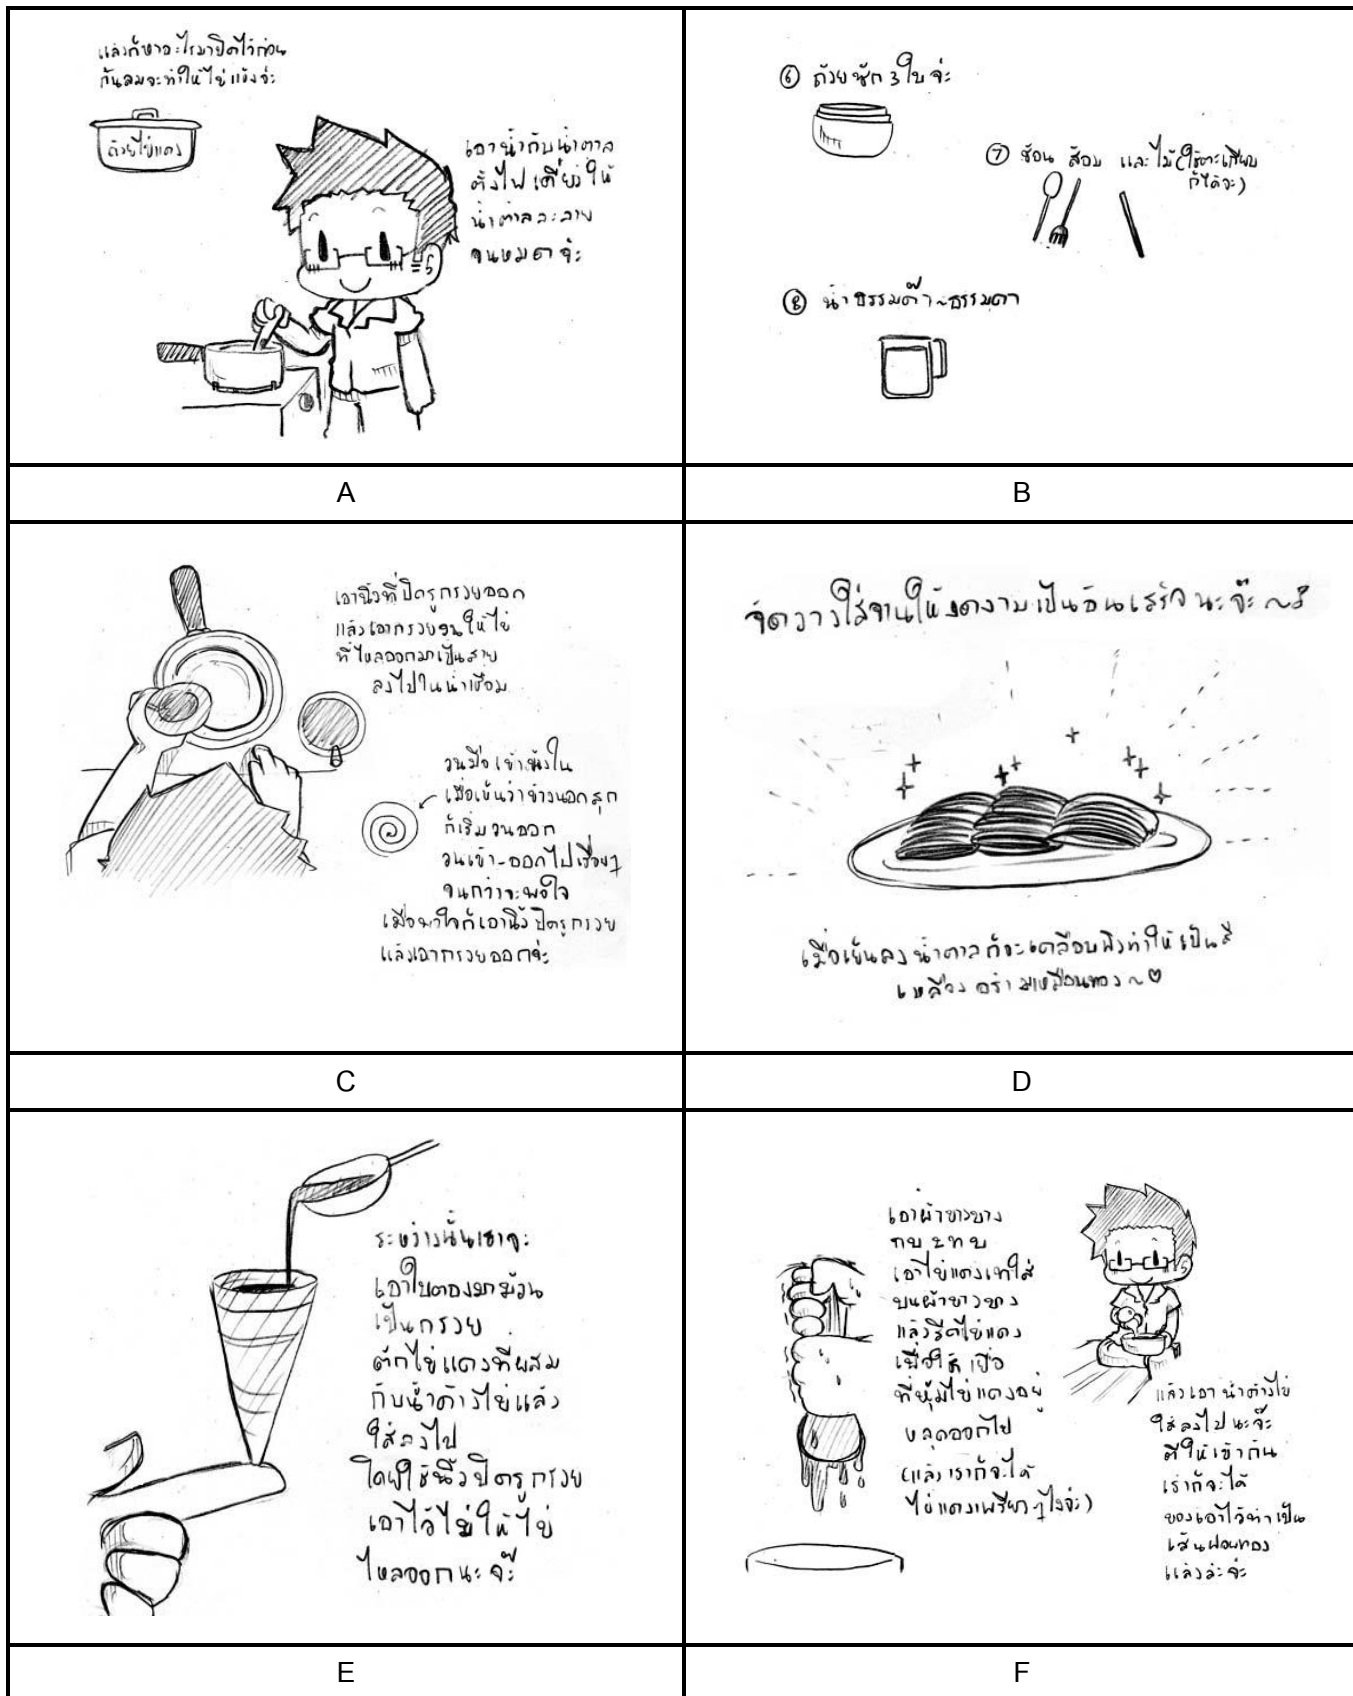 แล้วก็หาอะไรมาปิดไว้ก่อน
กันลมจะทำให้ไข่แข็งจ้ะ
ถ้วยไข่แดง
เอาน้ำกับน้ำตาล
ตั้งไฟเคี่ยวให้
น้ำตาลละลาย
จนหมดจ้ะ
A
⑥ ถ้วยซัก 3 ใบจ้ะ
⑦ ช้อน ส้อม และไม้ (ใช้ตะเกียบ
ก็ได้จ้ะ)
⑧ น้ำธรรมด๊า~ธรรมดา
B
เอานิ้วที่ปิดรูกรวยออก
แล้วเอากรวยวนให้ไข่
ที่ไหลออกมาเป็นสาย
ลงไปในน้ำเชื่อม
วนมือเข้าข้างใน
เมื่อเห็นว่าข้างนอกสุก
ก็เริ่มวนออก
วนเข้า-ออกไปเรื่อยๆ
จนกว่าจะพอใจ
เมื่อพอใจก็เอานิ้วปิดรูกรวย
แล้วเอากรวยออกจ้ะ
C
จัดวางใส่จานให้งดงามเป็นอันเสร็จนะจ๊ะ ~
เมื่อเย็นลงน้ำตาลก็จะเคลือบผิวทำให้เป็นสี
เหลืองอร่ามเหมือนทอง ~ ♡
D
ระหว่างนั้นเราจะ
เอาใบตองมาม้วน
เป็นกรวย
ตักไข่แดงที่ผสม
กับน้ำค้างไข่แล้ว
ใส่ลงไป
โดยใช้นิ้วปิดรูกรวย
เอาไว้ไม่ให้ไข่
ไหลออกนะจ๊ะ
E
เอาผ้าขาวบาง
ทบ 2 ทบ
เอาไข่แดงเทใส่
บนผ้าขาวบาง
แล้วรีดไข่แดง
เพื่อให้เยื่อ
ที่หุ้มไข่แดงอยู่
หลุดออกไป
(แล้วเราก็จะได้
ไข่แดงเพรียวๆไงจ้ะ)
แล้วเอาน้ำค้างไข่
ใส่ลงไปนะจ๊ะ
ตีให้เข้ากัน
เราก็จะได้
ของเอาไว้ทำเป็น
เส้นฝอยทอง
แล้วล่ะจ้ะ
F